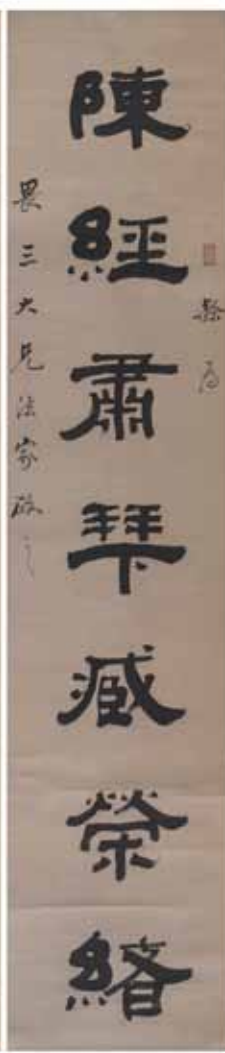 陳經肅拜臧榮緒
畏三大兄法家政之